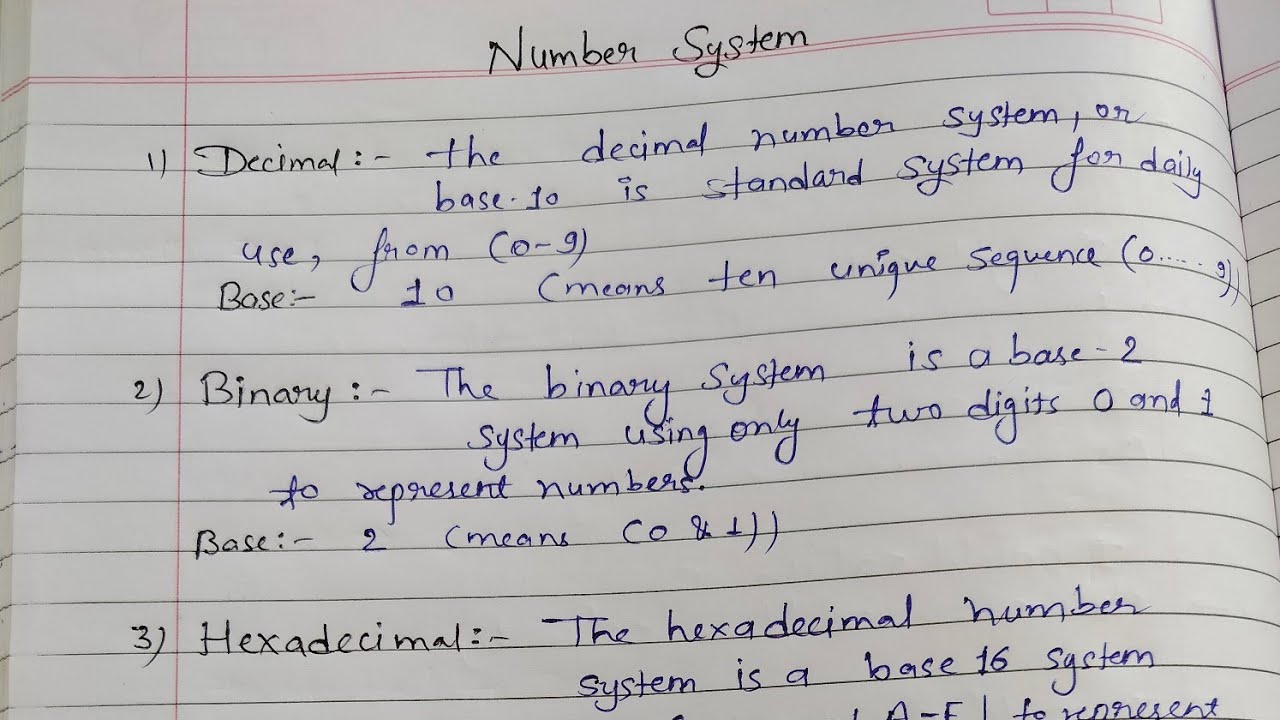 Number System
1) Decimal :- the decimal number system, or
base.10 is standard system for daily
use, from (0-9)
Base:- 10 (means ten unique sequence (0.....9))
2) Binary :- The binary system is a base-2
system using only two digits 0 and 1
to represent numbers.
Base:- 2 (means (0 & 1))
3) Hexadecimal:- The hexadecimal number
system is a base 16 system
A-F) to represent